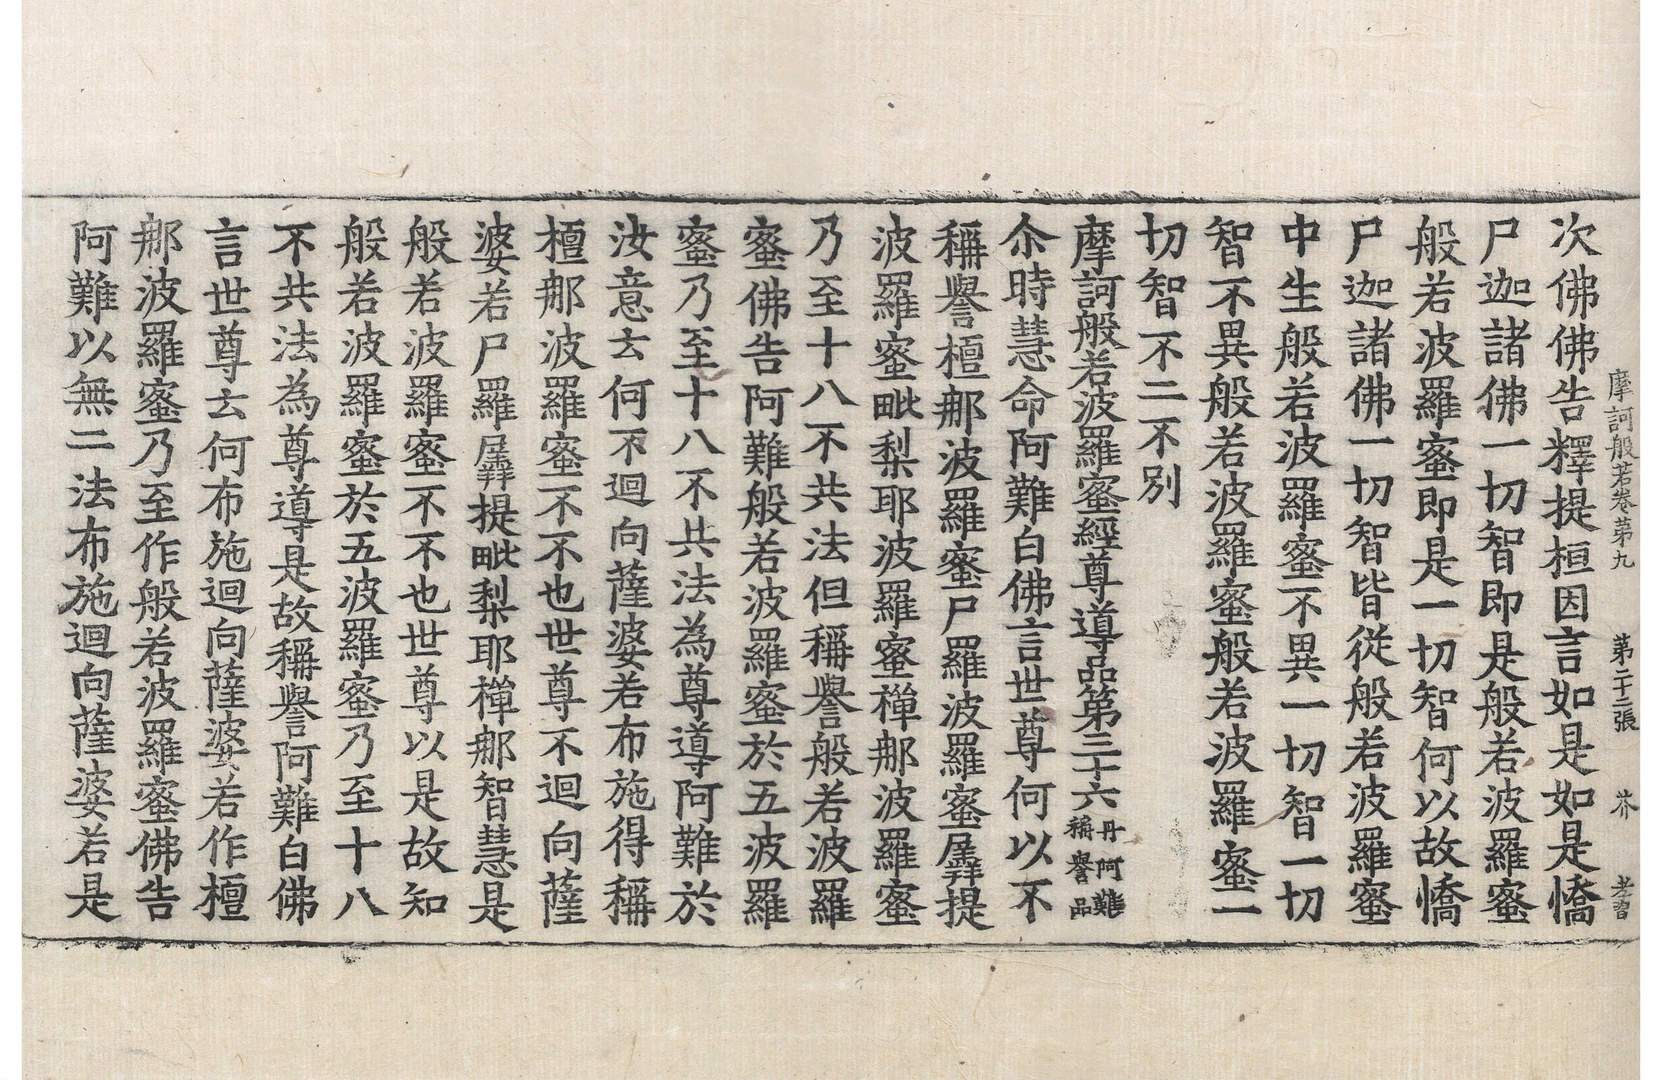 摩訶般若卷第九　第二十二張　芥　孝曺
次佛佛告釋提桓因言如是如是憍
尸迦諸佛一切智即是般若波羅蜜
般若波羅蜜即是一切智何以故憍
尸迦諸佛一切智皆從般若波羅蜜
中生般若波羅蜜不異一切智一切
智不異般若波羅蜜般若波羅蜜一
切智不二不別
摩訶般若波羅蜜經尊導品第三十六丹阿難稱譽品
尒時慧命阿難白佛言世尊何以不
稱譽檀那波羅蜜尸羅波羅蜜羼提
波羅蜜毗梨耶波羅蜜禪那波羅蜜
乃至十八不共法但稱譽般若波羅
蜜佛告阿難般若波羅蜜於五波羅
蜜乃至十八不共法為尊導阿難於
汝意云何不迴向薩婆若布施得稱
檀那波羅蜜不不也世尊不迴向薩
婆若尸羅羼提毗梨耶禪那智慧是
般若波羅蜜不不也世尊以是故知
般若波羅蜜於五波羅蜜乃至十八
不共法為尊導是故稱譽阿難白佛
言世尊云何布施迴向薩婆若作檀
那波羅蜜乃至作般若波羅蜜佛告
阿難以無二法布施迴向薩婆若是